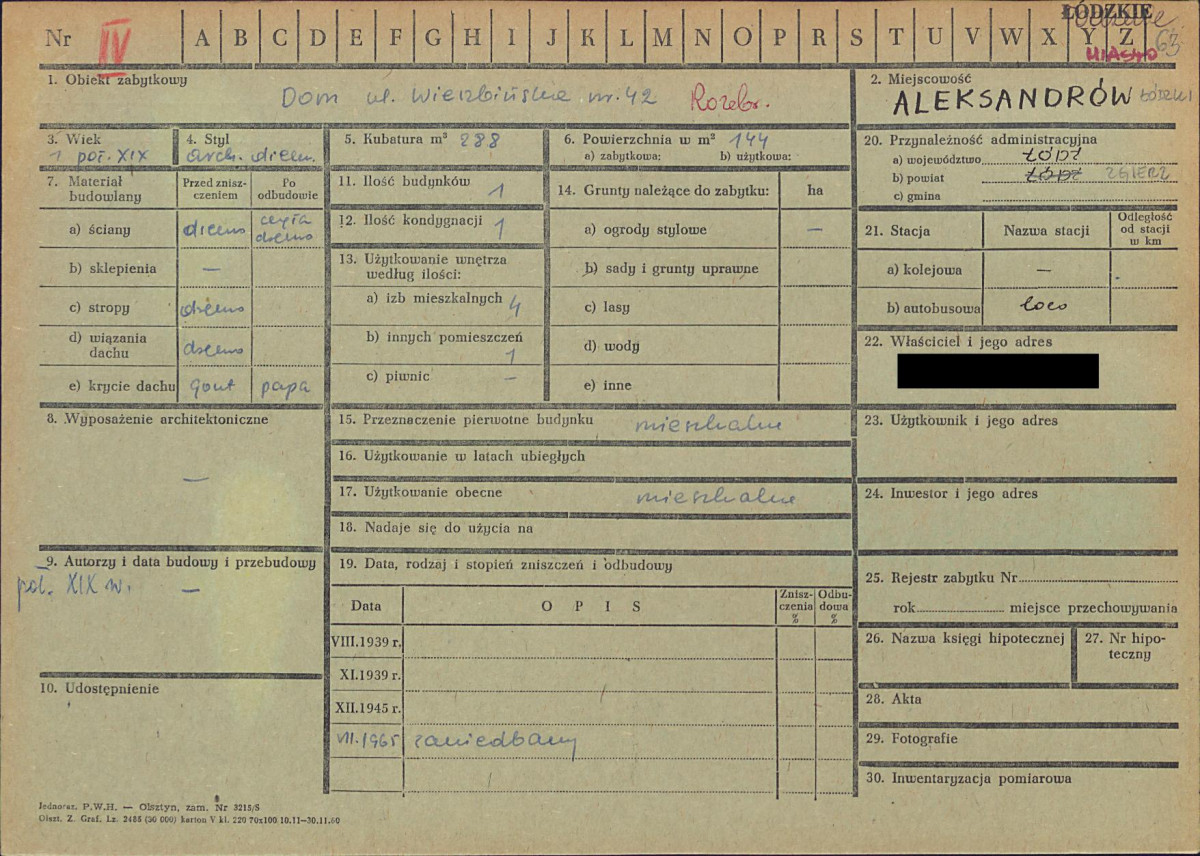 ŁÓDZKIE
Nr IV A B C D E F G H I J K L M N O P R S T U V W X Y Z 63
MIASTO
1. Obiekt zabytkowy
Dom ul. Wierzbińska nr. 42 Rozebr.
2. Miejscowość
ALEKSANDRÓW ŁÓDZKI
3. Wiek
1 poł. XIX
4. Styl
arch. drewn.
5. Kubatura m³ 288
6. Powierzchnia w m² 144
a) zabytkowa: b) użytkowa:
7. Materiał budowlany
Przed zniszczeniem
Po odbudowie
a) ściany drewno cegła drewno
b) sklepienia —
c) stropy drewno
d) wiązania dachu drewno
e) krycie dachu gont papa
8. Wyposażenie architektoniczne
—
9. Autorzy i data budowy i przebudowy
poł. XIX w. —
10. Udostępnienie
11. Ilość budynków 1
12. Ilość kondygnacji 1
13. Użytkowanie wnętrza
według ilości:
a) izb mieszkalnych 4
b) innych pomieszczeń
1
c) piwnic —
14. Grunty należące do zabytku: ha
a) ogrody stylowe —
b) sady i grunty uprawne
c) lasy
d) wody
e) inne
15. Przeznaczenie pierwotne budynku mieszkalne
16. Użytkowanie w latach ubiegłych
17. Użytkowanie obecne mieszkalne
18. Nadaje się do użycia na
19. Data, rodzaj i stopień zniszczeń i odbudowy
Data OPIS Zniszczenia % Odbudowa %
VIII.1939 r.
XI.1939 r.
XII.1945 r.
VII.1965 zaniedbany
20. Przynależność administracyjna
a) województwo ŁÓDŹ
b) powiat ŁÓDŹ ZGIERZ
c) gmina
21. Stacja Nazwa stacji Odległość od stacji w km
a) kolejowa —
b) autobusowa loco
22. Właściciel i jego adres
23. Użytkownik i jego adres
24. Inwestor i jego adres
25. Rejestr zabytku Nr
rok miejsce przechowywania
26. Nazwa księgi hipotecznej
27. Nr hipoteczny
28. Akta
29. Fotografie
30. Inwentaryzacja pomiarowa
Jednoraz. P.W.H. — Olsztyn, zam. Nr 3215/S
Olszt. Z. Graf. Lz. 2485 (30 000) karton V kl. 220 70x100 10.11—30.11.60